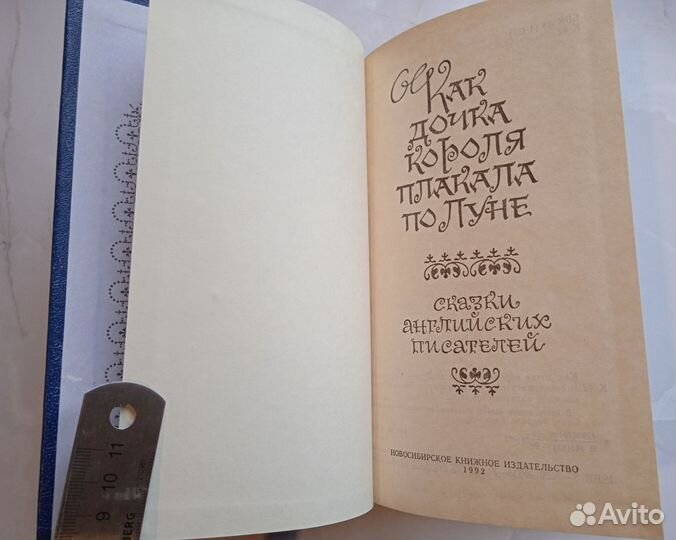 Как
дочка
короля
плакала
по Луне
сказки
английских
писателей
НОВОСИБИРСКОЕ КНИЖНОЕ ИЗДАТЕЛЬСТВО
1992
9 10 11
BERG
Avito